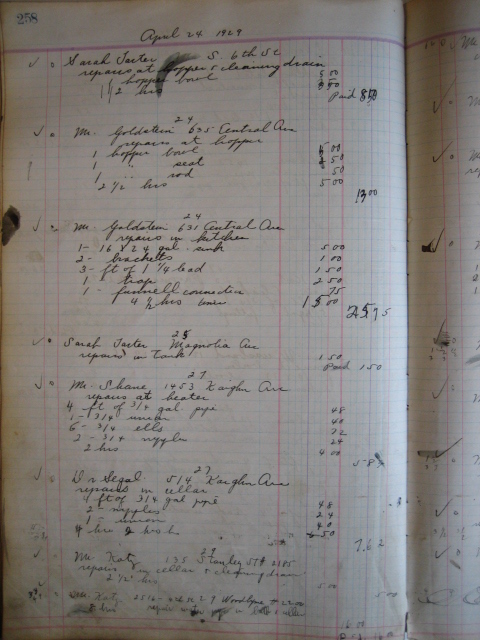 258
April 24 1929
Sarah Tarter S. 6th St
repairs at hopper & cleaning drain
1 hopper bowl 5 50
1 1/2 hrs
Paid 8 50
24
Mr. Goldstein 635 Central Ave
repairs at hopper
1 hopper bowl 5 00
1 " seat 50
1 " rod 50
2 1/2 hrs 5 00
24
Mr. Goldstein 631 Central Ave
repairs in kitchen
1 - 16 x 24 gal. sink 5 00
2 - bracketts 1 00
3 - ft of 1 1/4 lead 1 50
1 - trap 2 50
1 - funnell connection 75
4 1/2 hrs time 15 00
25 75
25
Sarah Tarter Magnolia Ave
repairs in tank 1 50
Paid 1 50
27
Mr. Shane 1453 Kaighn Ave
repairs at heater
4 ft of 3/4 gal pipe 48
1 - 3/4 union 40
6 - 3/4 ells 72
2 - 3/4 nipples 24
2 hrs 4 00
5 84
27
Dr Segal 514 Kaighn Ave
repairs in cellar
4 ft of 3/4 gal pipe 48
2 - nipples 24
1 - union 40
4 hrs
7.62
Mr. Katz 135 Stanley St
repairs in cellar & cleaning drain
2 1/2 hrs 5 00
Mr. Katz Woodlyne
hrs repair